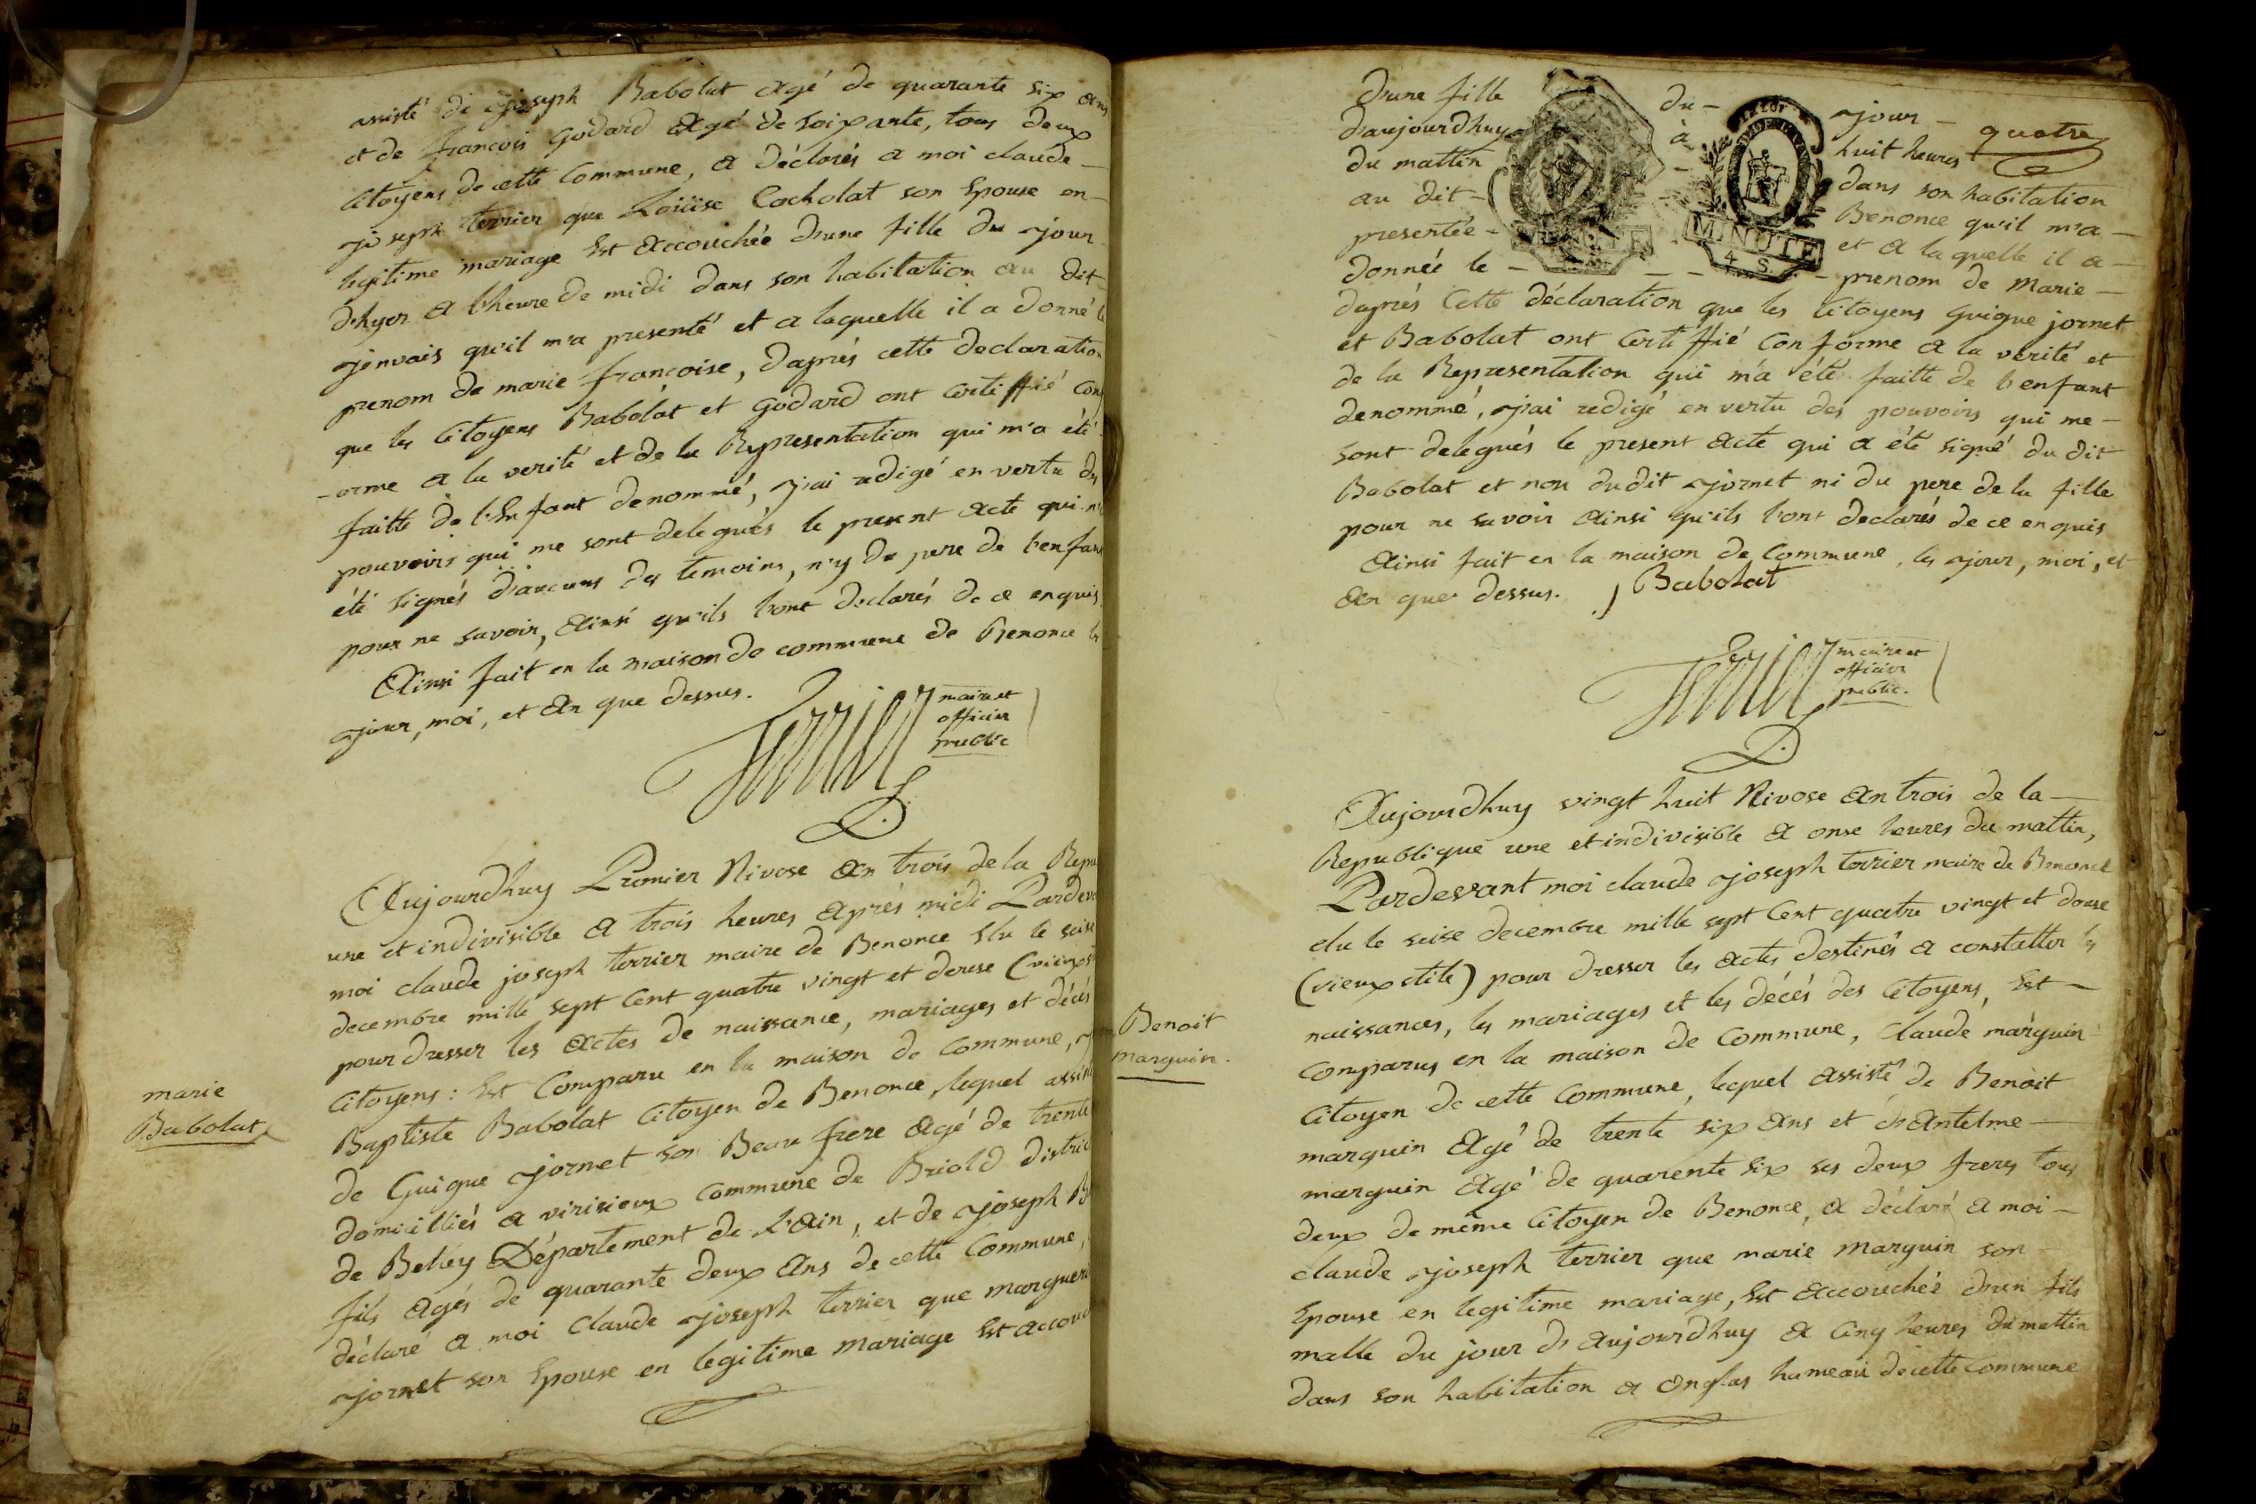 assisté de joseph Babolat agé de quarante six ans
et de francois Godard agé de soixante, tous deux
Citoyens de cette Commune, a déclarés a moi claude
joseph terrier que Loüise Cocholat son Epouse en
legitime mariage Est accouchée d'une fille du jour
d'hyer a l'heure de midi dans son habitation au dit
jonvais qu'il m'a presenté et a laquelle il a donné le
prenom de marie francoise, daprés cette declaration
que les Citoyens Babolat et Godard ont certiffié con
orme a la verité et de la Representation qui m'a été
faitte de l'Enfant denommé, j'ai redigé en vertu des
pouvoirs qui me sont delegués le present acte qui n'a
été signés d'aucuns des temoins, n'y du pere de l'enfant
pour ne savoir, ainsi qu'ils l'ont declarés de ce enquis
Ainsi fait en la maison de commune de Benonce les
jour, moi, et an que dessus.
Terrier maire et
officier
public
Aujourdhuy Premier Nivose an trois de la Repu
une et indivisible a trois heures aprés midi Pardeva
moi claude joseph terrier maire de Benonce Elu le seise
decembre mille sept Cent quatre vingt et douse (vieux st
pour dresser les actes de naissance, mariages et décés
Citoyens: Est Comparu en la maison de Commune, j
marie
Babolat
Baptiste Babolat Citoyen de Benonce, lequel assist
de Guigue jornet son Beau frere agé de trente
domicilliés a virisieux commune de Briold distric
de Belley Département de L'ain, et de joseph B
fils agés de quarante deux ans de cette Commune,
déclaré a moi Claude joseph terrier que margueri
jornet son Epouse en legitime mariage Est accouc
quatre
d'une fille du jour
daujourdhuy à huit heures
du mattin dans son habitation
au dit Benonce qu'il m'a
presentée et a laquelle il a
donnée le prenom de Marie
MINUTE
4 S.
daprés Cette déclaration que les Citoyens Guigue jornet
et Babolat ont certiffié Conforme a la verité et
de la Representation qui m'a été faitte de l'enfant
denommé, j'ai redigé en vertu des pouvoirs qui me
sont delegués le present acte qui a été signé du dit
Babolat et non du dit jornet ni du pere de la fille
pour ne savoir ainsi qu'ils l'ont declarés de ce enquis
Ainsi fait en la maison de Commune les jour, moi, et
an que dessus. J Babolat
Terrier maire et
officier
public.
Aujourdhuy vingt huit Nivose an trois de la
Republique une et indivisible a onse heures du mattin,
Pardevant moi claude joseph terrier maire de Benonce
elu le seise decembre mille sept Cent quatre vingt et douse
(vieux stile) pour dresser les actes destinés a constatter les
naissances, les mariages et les décés des Citoyens, Est
Benoit
marguin.
Comparus en la maison de Commune, Claude marguin
Citoyen de cette Commune, lequel assisté de Benoit
marguin agé de trente six ans et d'antelme
marguin agé de quarente six ses deux freres tous
deux de même Citoyen de Benonce, a déclaré a moi
claude joseph terrier que marie marguin son
Epouse en legitime mariage, Est accouchée d'un fils
malle du jour d'aujourdhuy a Cinq heures du mattin
dans son habitation a onglas hameau de cette Commune